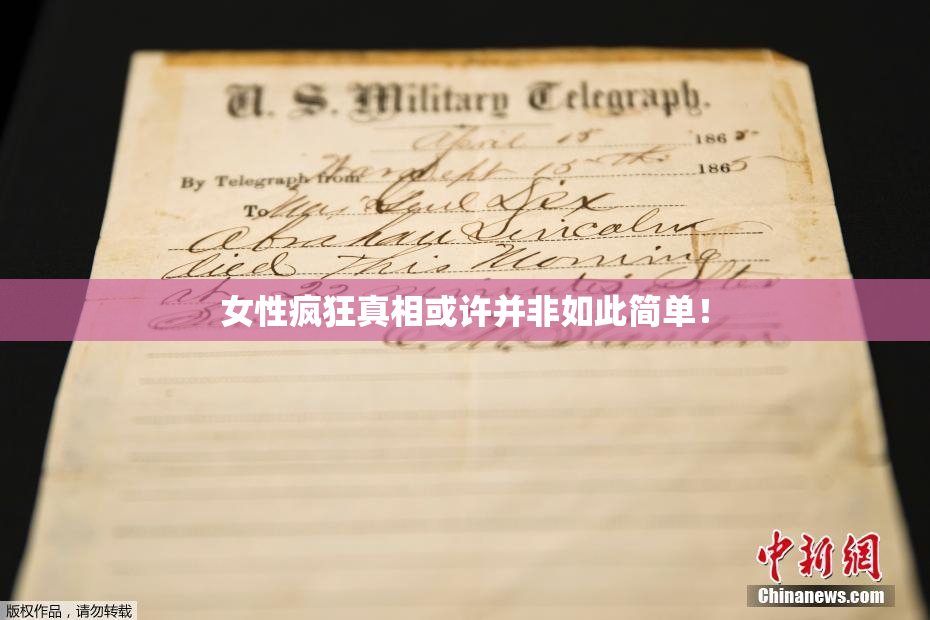 U. S. Military Telegraph.
April 15 1865.
By Telegraph from War Dept 15th 1865
To Maj Genl Dix
Abraham Lincoln
died This Morning
at 22 minutes after
女性疯狂真相或许并非如此简单！
E. M. Stanton
中新网
Chinanews.com
版权作品，请勿转载